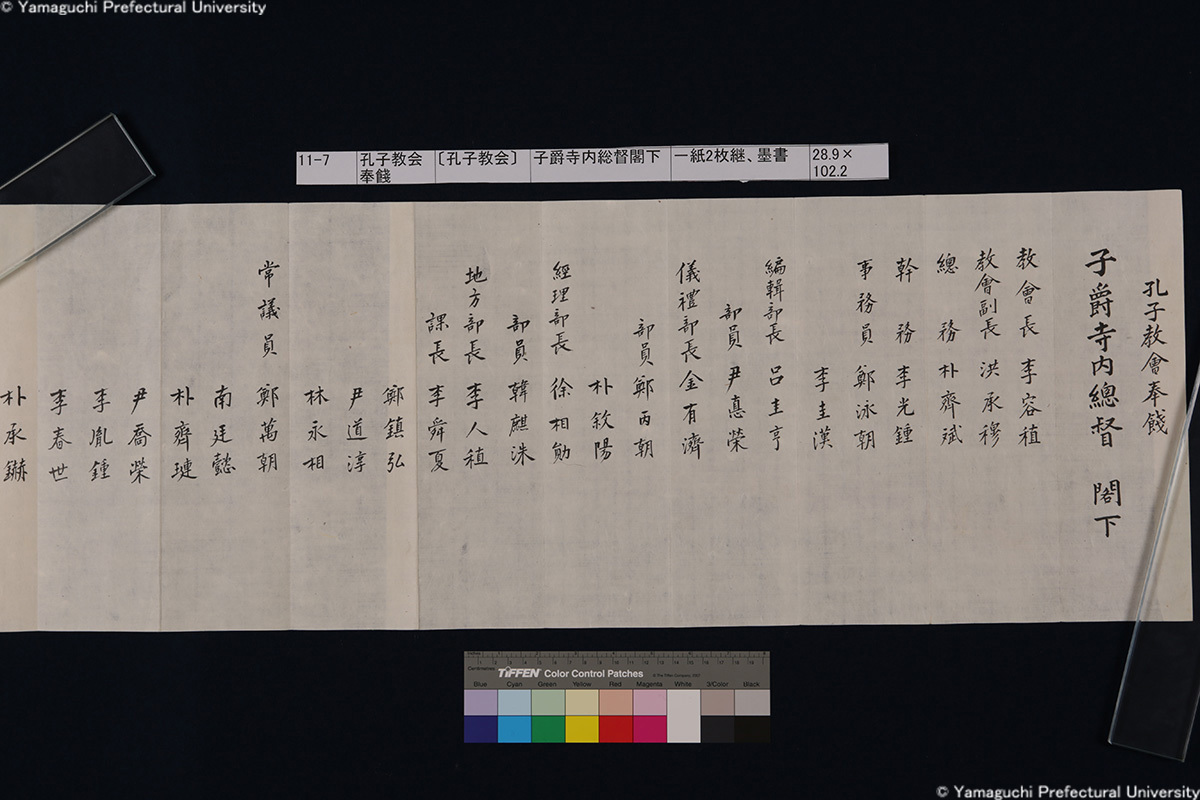 © Yamaguchi Prefectural University
11-7
孔子教会奉餞
〔孔子教会〕
子爵寺内総督閣下
一紙2枚継、墨書
28.9×
102.2
孔子教會奉餞
子爵寺内總督 閣下
教會長 李容稙
教會副長 洪承穆
總務 朴齊斌
幹務 李光鍾
事務員 鄭泳朝
李圭漢
編輯部長 呂圭亨
部員 尹悳榮
儀禮部長 金有濟
部員 鄭丙朝
朴敍陽
經理部長 徐相勛
部員 韓麒洙
地方部長 李人稙
課長 李舜夏
鄭鎮弘
尹道淳
林永相
常議員 鄭萬朝
南廷懿
朴齊璉
尹喬榮
李胤鍾
李春世
朴承爀
Centimetres
TIFFEN Color Control Patches
© The Tiffen Company, 2007
Blue Cyan Green Yellow Red Magenta White 3/Color Black
© Yamaguchi Prefectural University